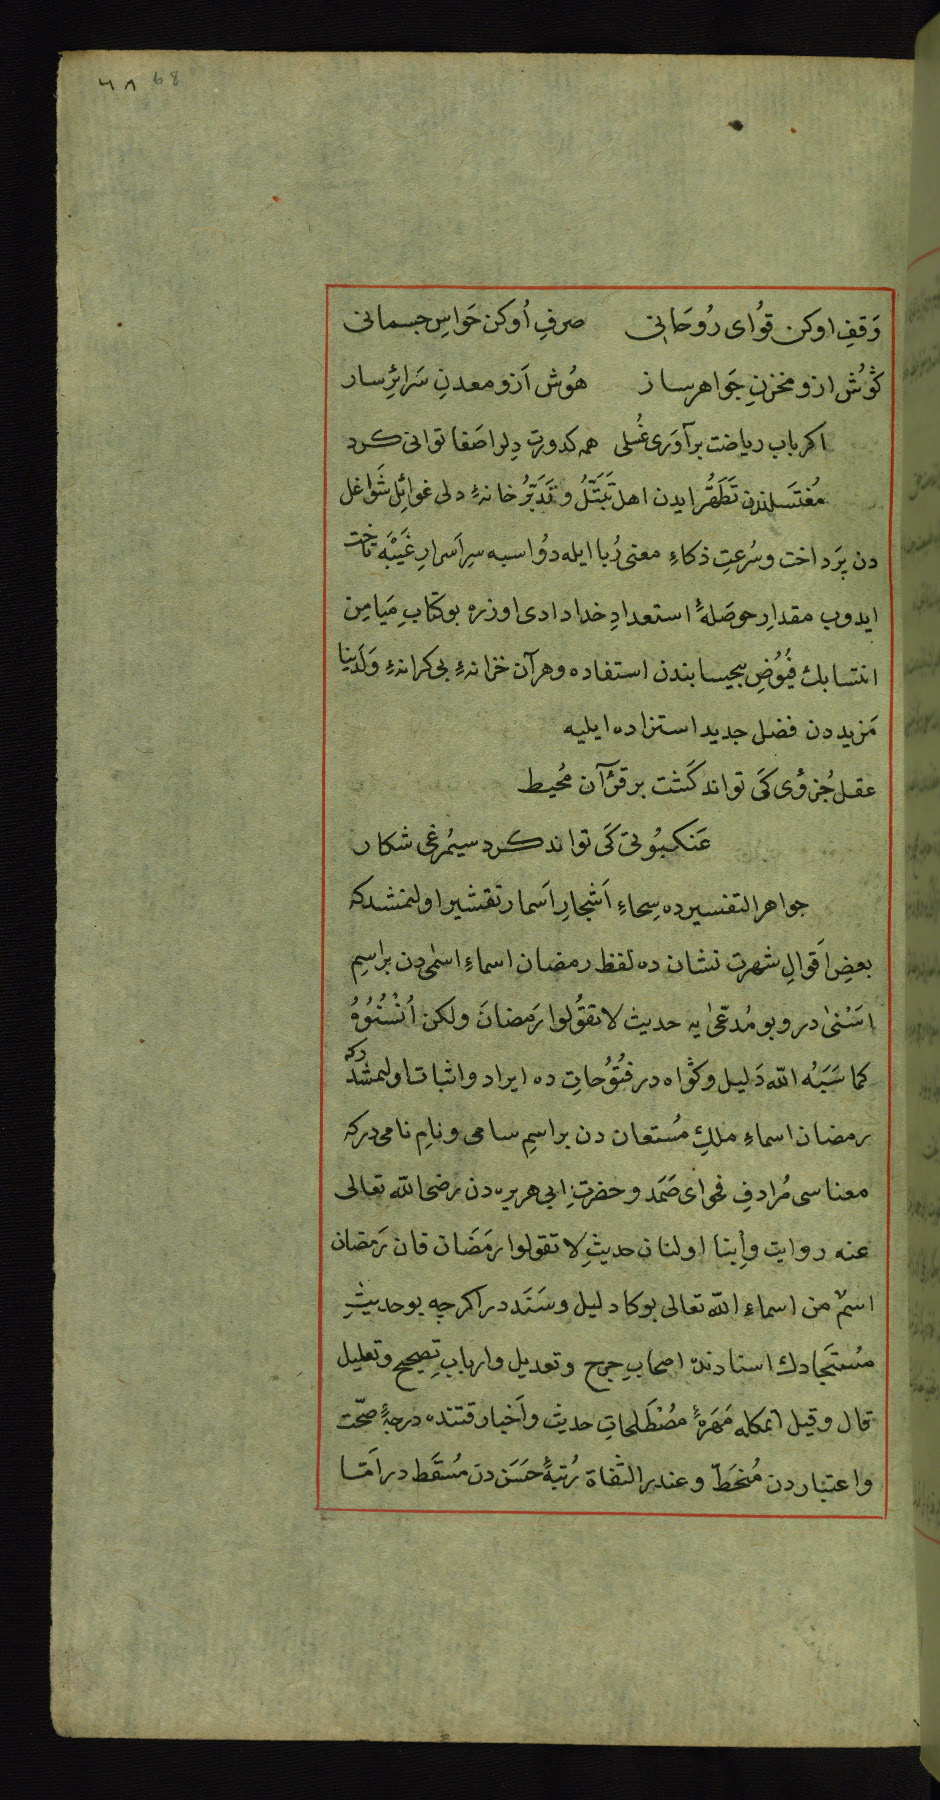 ٦٨ 68
وَقفِ اوکن قوُای رُوحَانِی صرفِ اُوکن حَواسِ جسمانی
کوُش ازو مخزنِ جَواهرساز هوُش اَزو معدنِ سَرائِرِسار
اکر باب ریاضت برآوَری غُسلی همه کدورتِ دِلرا صَفا توانی کرد
مُغتَسلندن تَطَهُّر ایدن اهل تَبَتُّلُ و تَدَبُّرُ خانهٔ دلی غوائِلِ شَواغل
دن پَرداخت و سُرعتِ ذکاءِ معنی رُبا ایله دوُ اسبه سِرِ اَسرارِ غَیبَّه تاخت
ایدوب مقدارِ حوصَلهٔ استعدادِ خدادادی اوزره بو کتابِ مَیامِن
انتسابك فُیُوُضِ بیحسابندن استفاده وهرآن خزانهٔ بی کرانهٔ وَلَدَینا
مَزیددن فضل جدید استزاده ایلیه
عقل جُزوُی کَی تواند کَشت بر قرُآن مُحیط
عَنکبوُتی کَی تواند کرد سیمُرغی شکار
جواهر التفسیرده سِحاءِ اَشجارِ اَسمار تقشیر اولنمشدکه
بعضِ اَقوالِ شهرت نشان ده لفظ رمضان اسماءِ اسمٰی دن بر اسمِ
اسَنیٰ در و بو مُدّعیٰ یه حدیث لا تقوُلوا رَمضانَ ولکن اُنْسُبُوُهُ
کما نَسَبَهُ اللّه دَلیل و کوُاه در فتُوُحاتِ ده ایراد و اثبات اولنمشدُرکه
رمضان اسماءِ ملكِ مُستعان دن بر اسمِ سامی و نامِ نامی درکه
معناسی مُرادفِ فحوای صَمَد و حضرتِ ابی هریره دن رضی اللّه تعالی
عنه روایت و اِنبا اولنان حدیثِ لا تقولوا رمَضَان فان رَمضان
اسمٌ من اسماءِ اللّه تعالی بوکا دلیل و سَنَددر اکرچه بو حدیثِ
مُستَجادك اسنادنده اصحابِ جرح و تعدیل و اربابِ تِصحیح و تعلیل
قال و قیل اتمکله مَهَرهٔ مصُطَلحاتِ حدیث و اَخبار قتنده درجهٔ صحّت
و اعتباردن مُنحَطّ و عند بر الثقاة رُتبهٔ حَسَن دن مسُقَط در امَّا